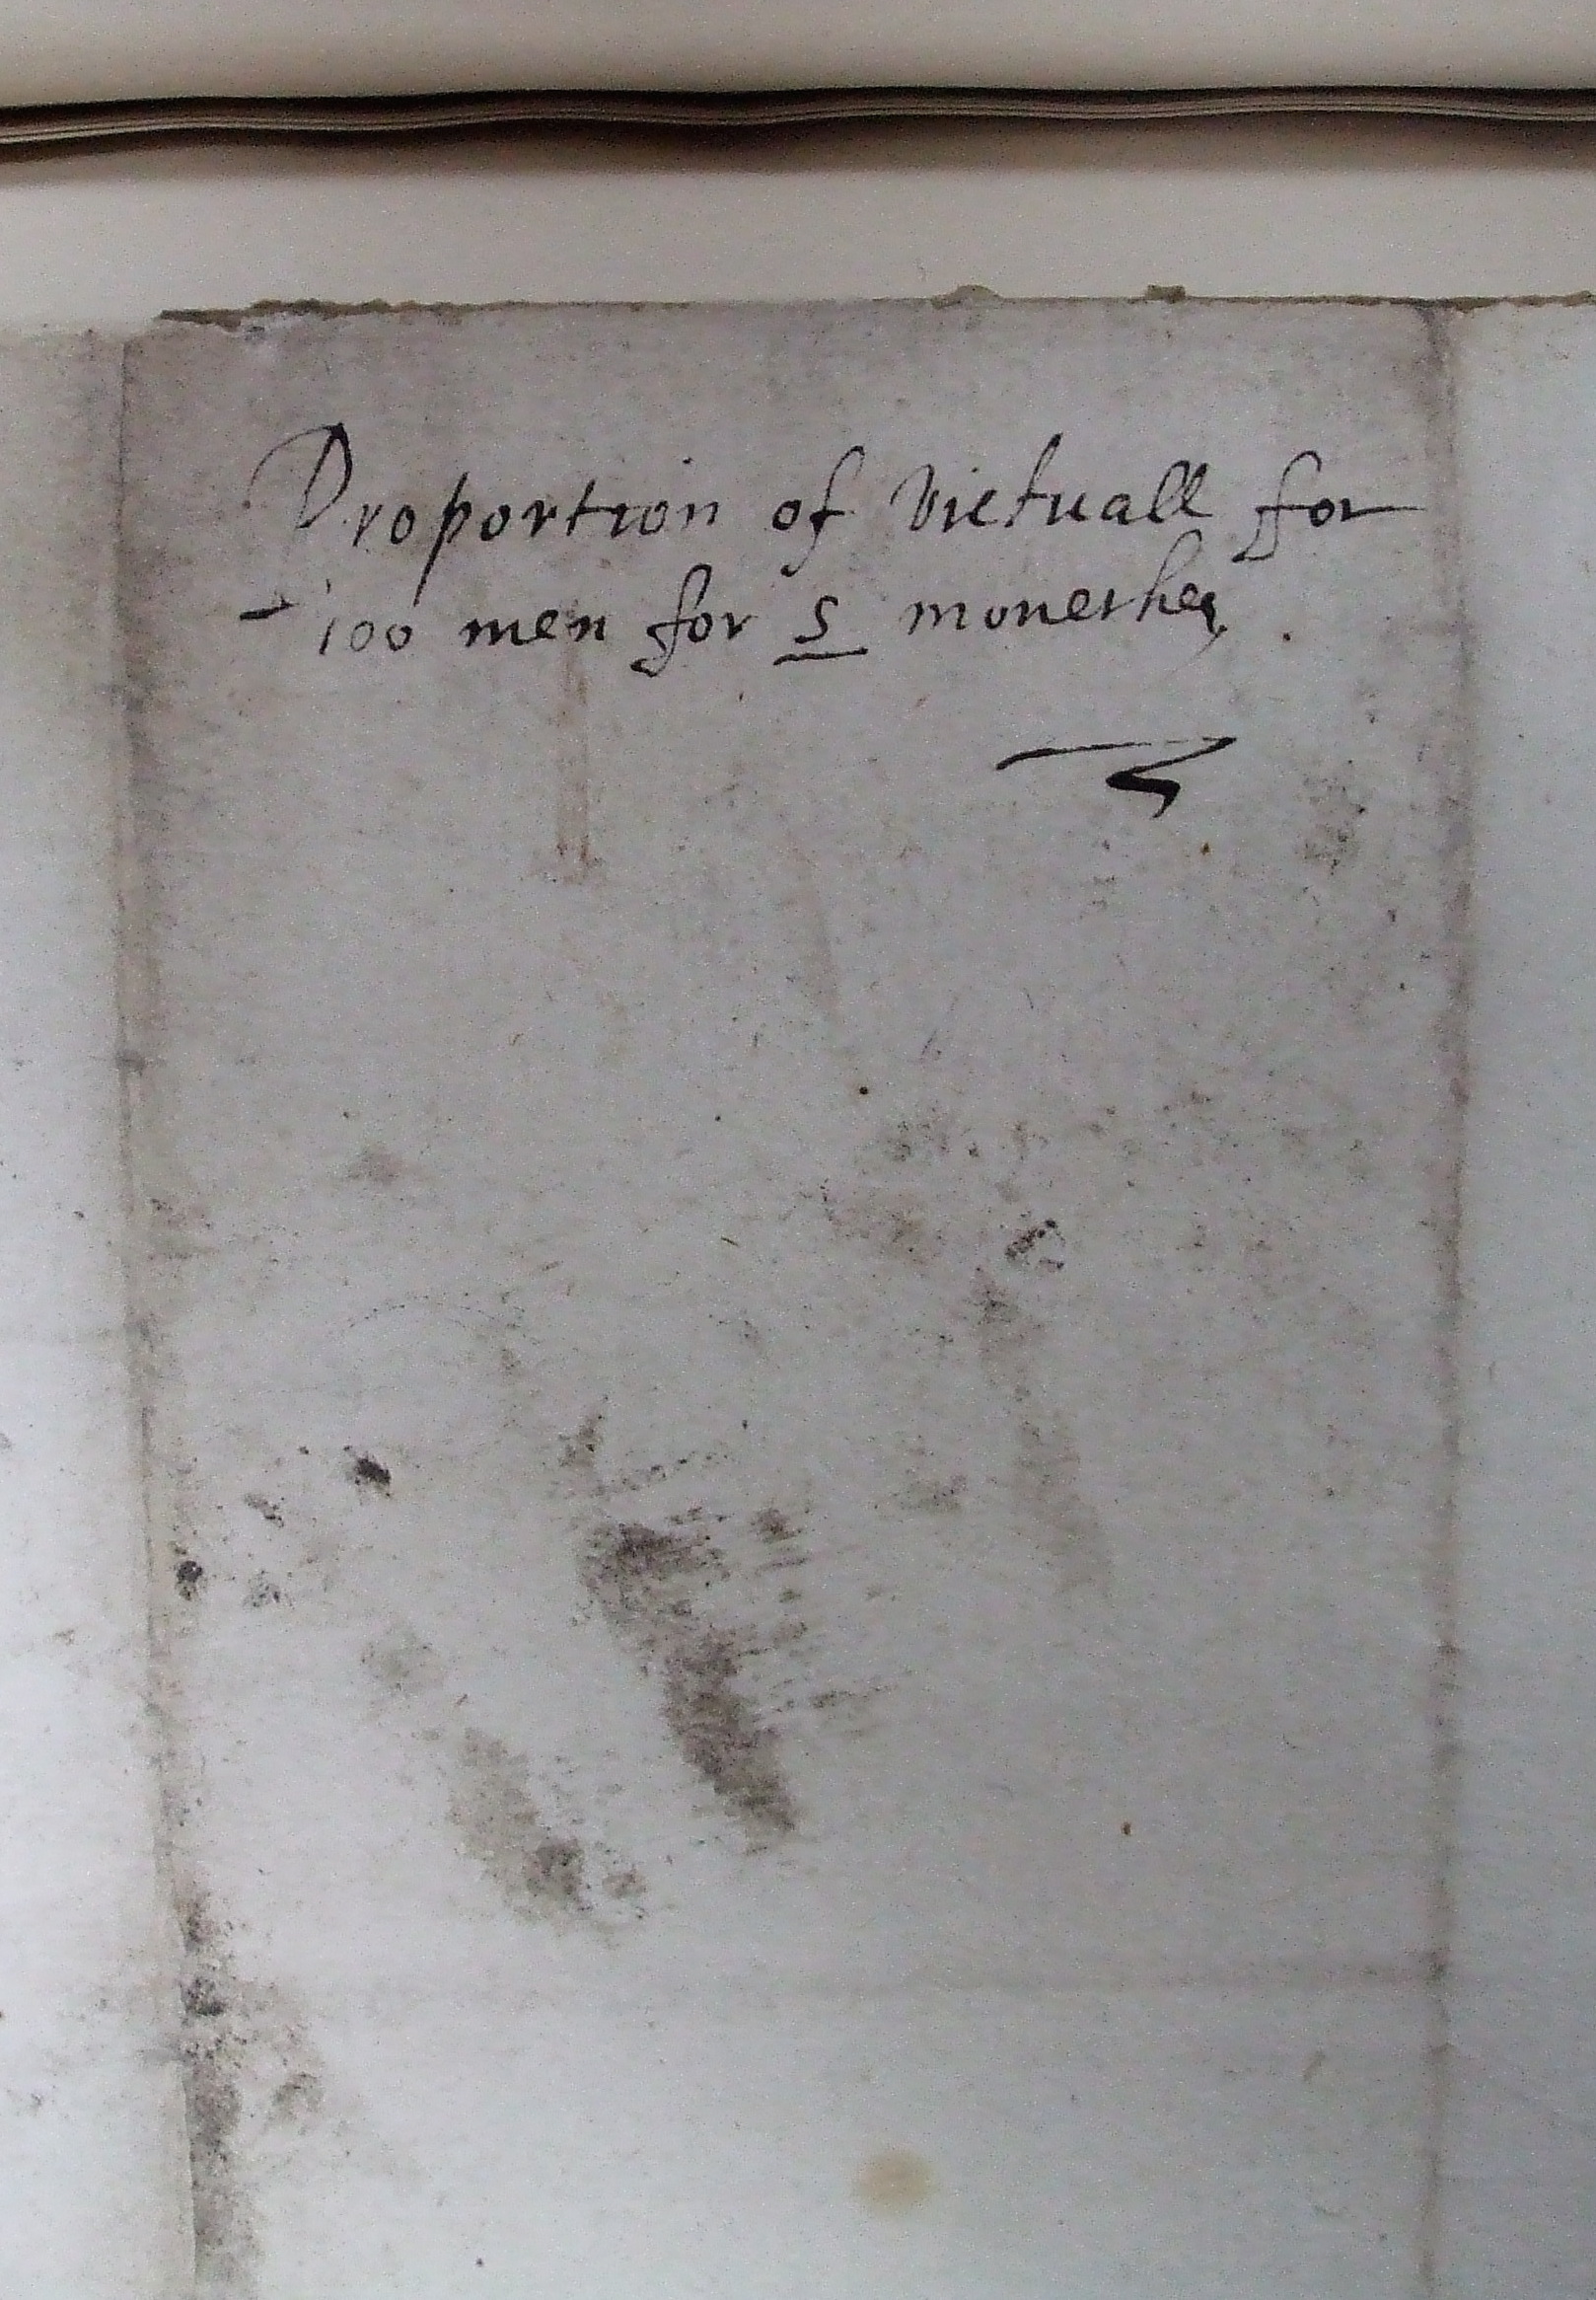 Proportion of victuall for
100 men for 5 monethes.